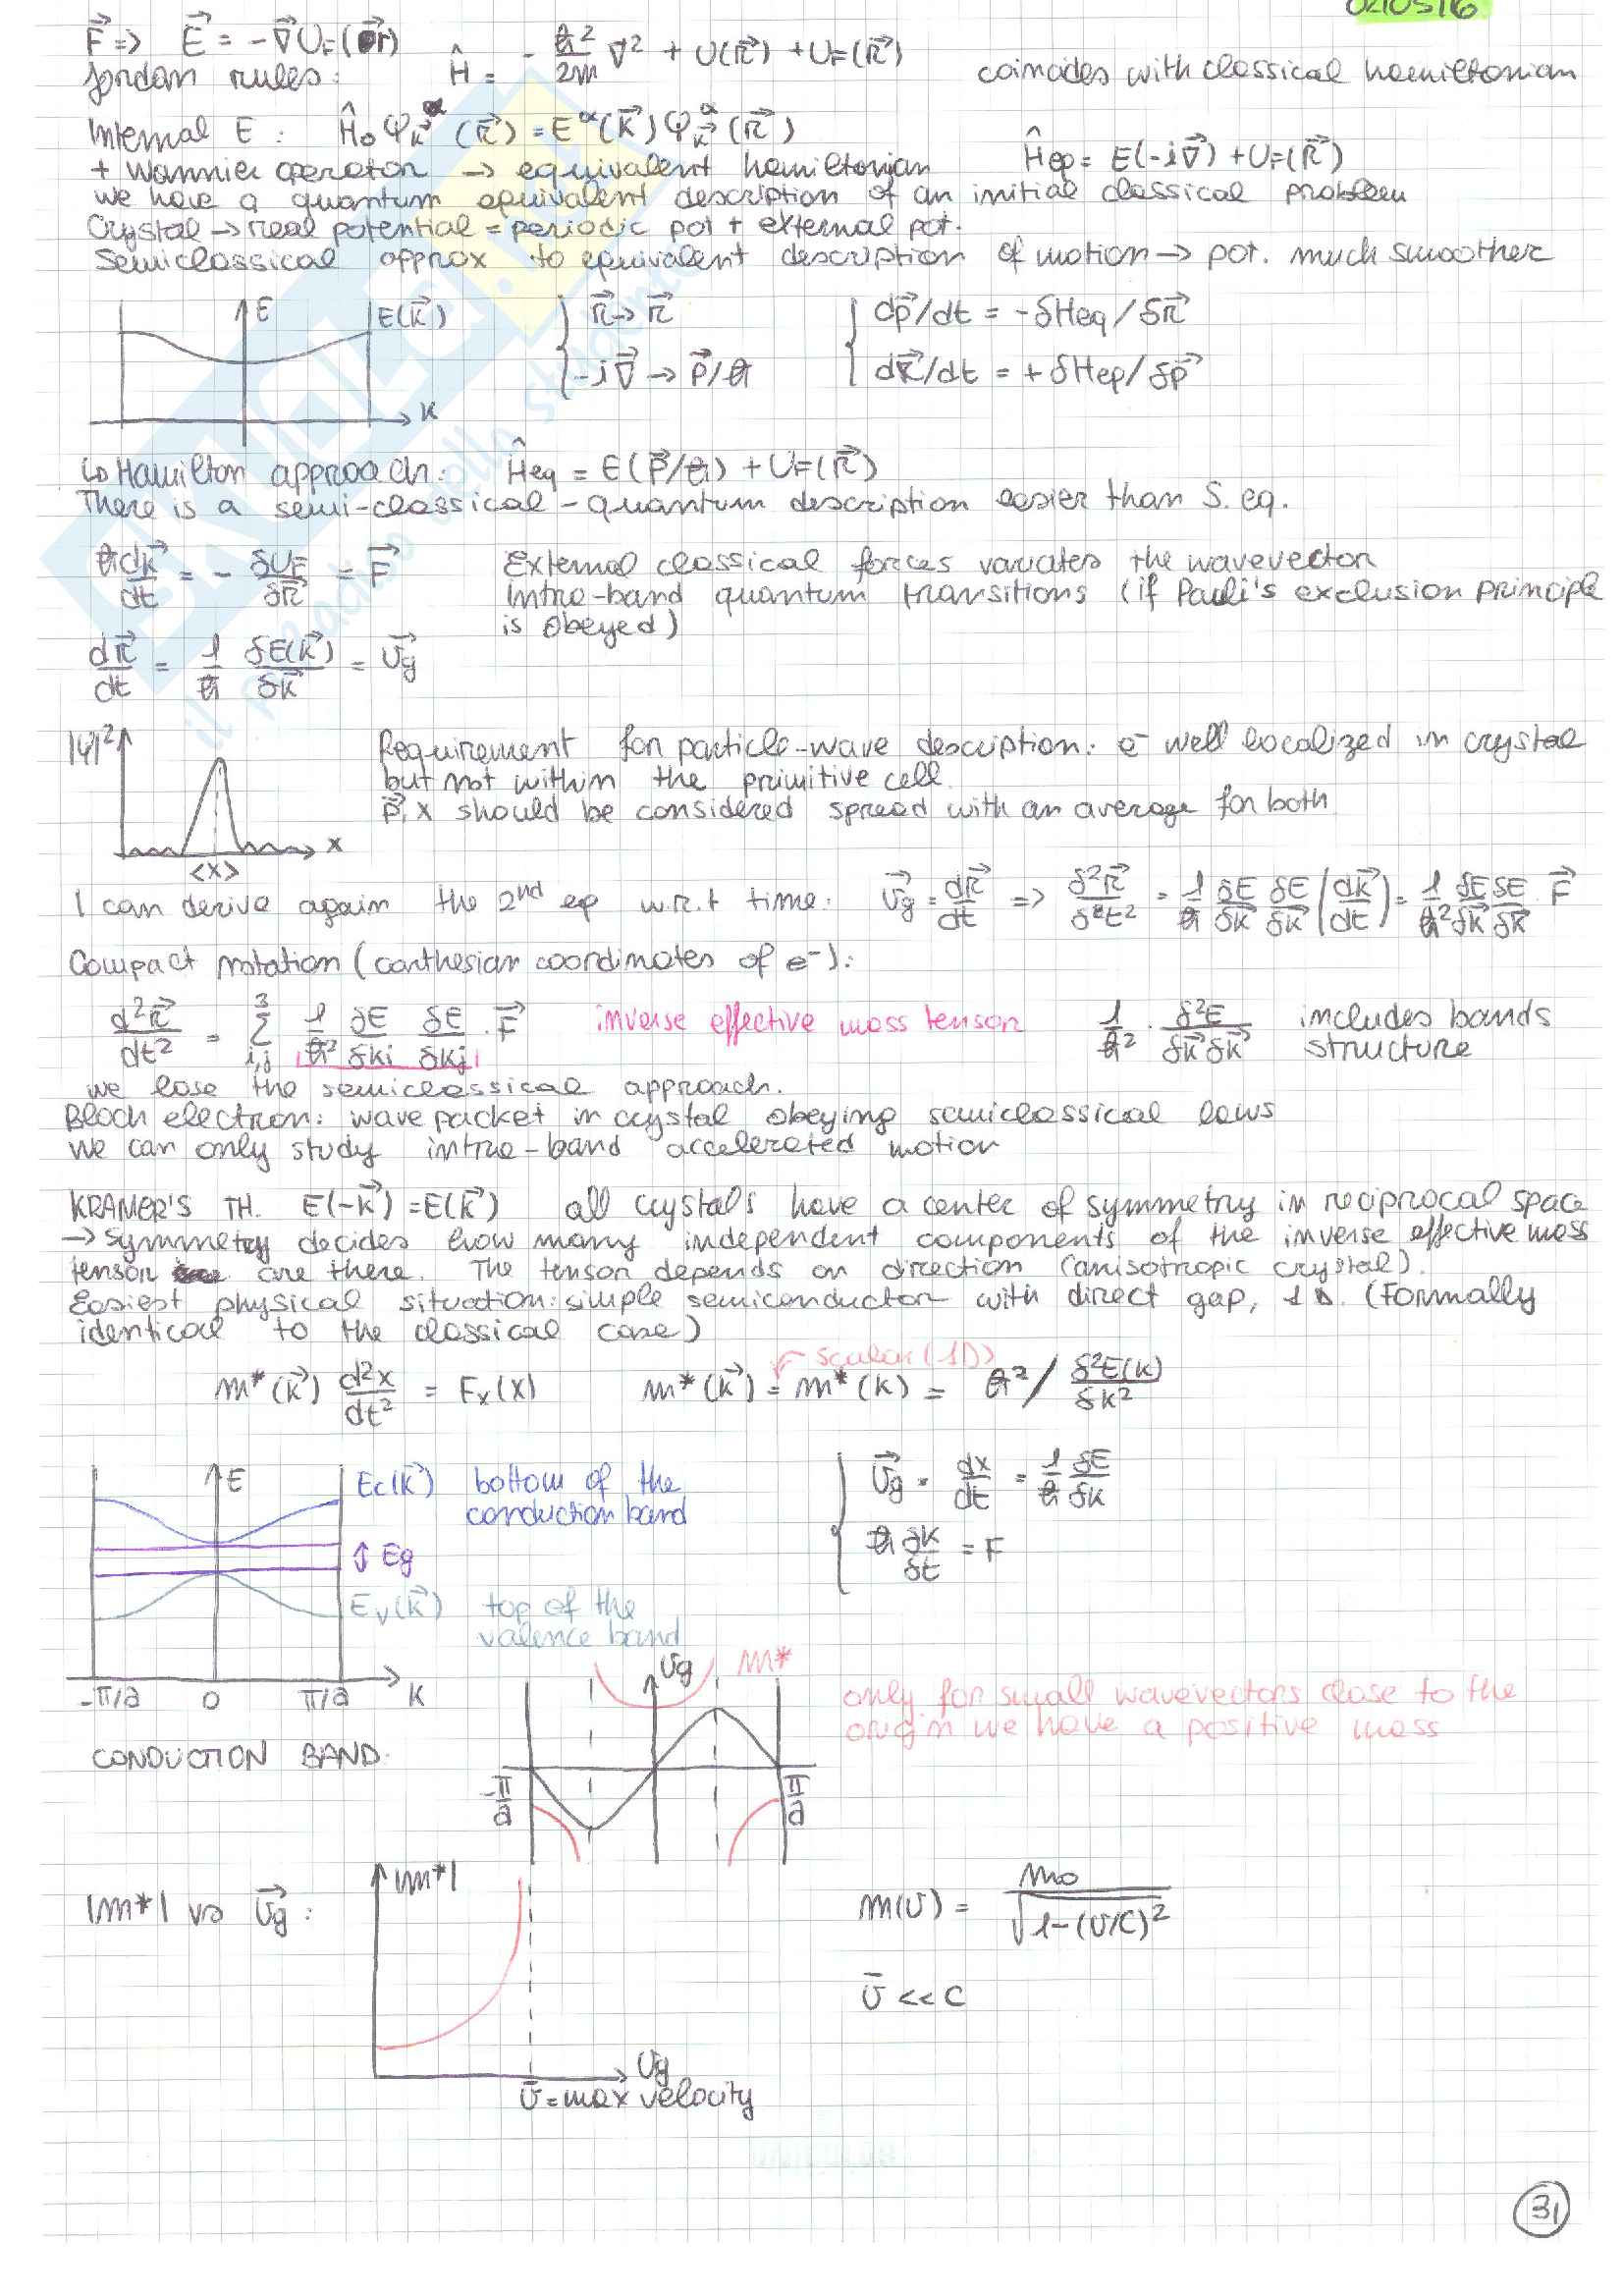 020516
F⃗ => E⃗ = -∇⃗U_F(r⃗)
Jordan rules: Ĥ = -ħ²/2m ∇² + U(r⃗) + U_F(r⃗) coincides with classical hamiltonian
Internal E: Ĥ₀ φ_k⃗^α (r⃗) = E^α(k⃗) φ_k⃗^α (r⃗)
+ Wannier operator → equivalent hamiltonian Ĥeq = E(-i∇⃗) + U_F(r⃗)
we have a quantum equivalent description of an initial classical problem
Crystal → real potential = periodic pot + external pot.
Semiclassical approx to equivalent description of motion → pot. much smoother
E E(k⃗) k
r⃗ → r⃗ dp⃗/dt = -δHeq/δr⃗
-i∇⃗ → p⃗/ħ dr⃗/dt = +δHeq/δp⃗
↳ Hamilton approach: Ĥeq = E(p⃗/ħ) + U_F(r⃗)
There is a semi-classical - quantum description easier than S. eq.
ħ dk⃗/dt = - δU_F/δr⃗ = F⃗ External classical forces variates the wavevector
Intra-band quantum transitions (if Pauli's exclusion principle
is obeyed)
dr⃗/dt = 1/ħ δE(k⃗)/δk⃗ = v⃗g
|ψ|² x <x>
Requirement for particle-wave description: e⁻ well localized in crystal
but not within the primitive cell.
p⃗, x should be considered spread with an average for both
I can derive again the 2nd eq w.r.t time: v⃗g = dr⃗/dt => δ²r⃗/δt² = 1/ħ δE/δk⃗ δE/δk⃗ (dk⃗/dt) = 1/ħ² δE/δk⃗ δE/δk⃗ · F⃗
Compact notation (carthesian coordinates of e⁻):
d²r⃗/dt² = Σ_{i,j}^3 1/ħ² δE/δki δE/δkj · F⃗ inverse effective mass tensor 1/ħ² · δ²E/δk⃗δk⃗ includes bands
structure
we lose the semiclassical approach.
Bloch electron: wave packet in crystal obeying semiclassical laws
we can only study intra-band accelerated motion
KRAMER'S TH. E(-k⃗) = E(k⃗) all crystals have a center of symmetry in reciprocal space
→ symmetry decides how many independent components of the inverse effective mass
tensor are there. The tensor depends on direction (anisotropic crystal).
Easiest physical situation: simple semiconductor with direct gap, 1D. (Formally
identical to the classical case)
scalar (1D)
m*(k⃗) d²x/dt² = Fx(x) m*(k⃗) = m*(k) = ħ² / δ²E(k)/δk²
E Ec(k⃗) bottom of the
conduction band
Eg
Ev(k⃗) top of the
valence band
-π/a 0 π/a k
v⃗g = dx/dt = 1/ħ δE/δk
ħ δk/δt = F
CONDUCTION BAND:
vg m*
-π/a π/a
only for small wavevectors close to the
origin we have a positive mass
|m*| vs v⃗g:
|m*|
vg
v̄ = max velocity
m(v) = m₀/√1-(v/c)²
v̄ << c
31